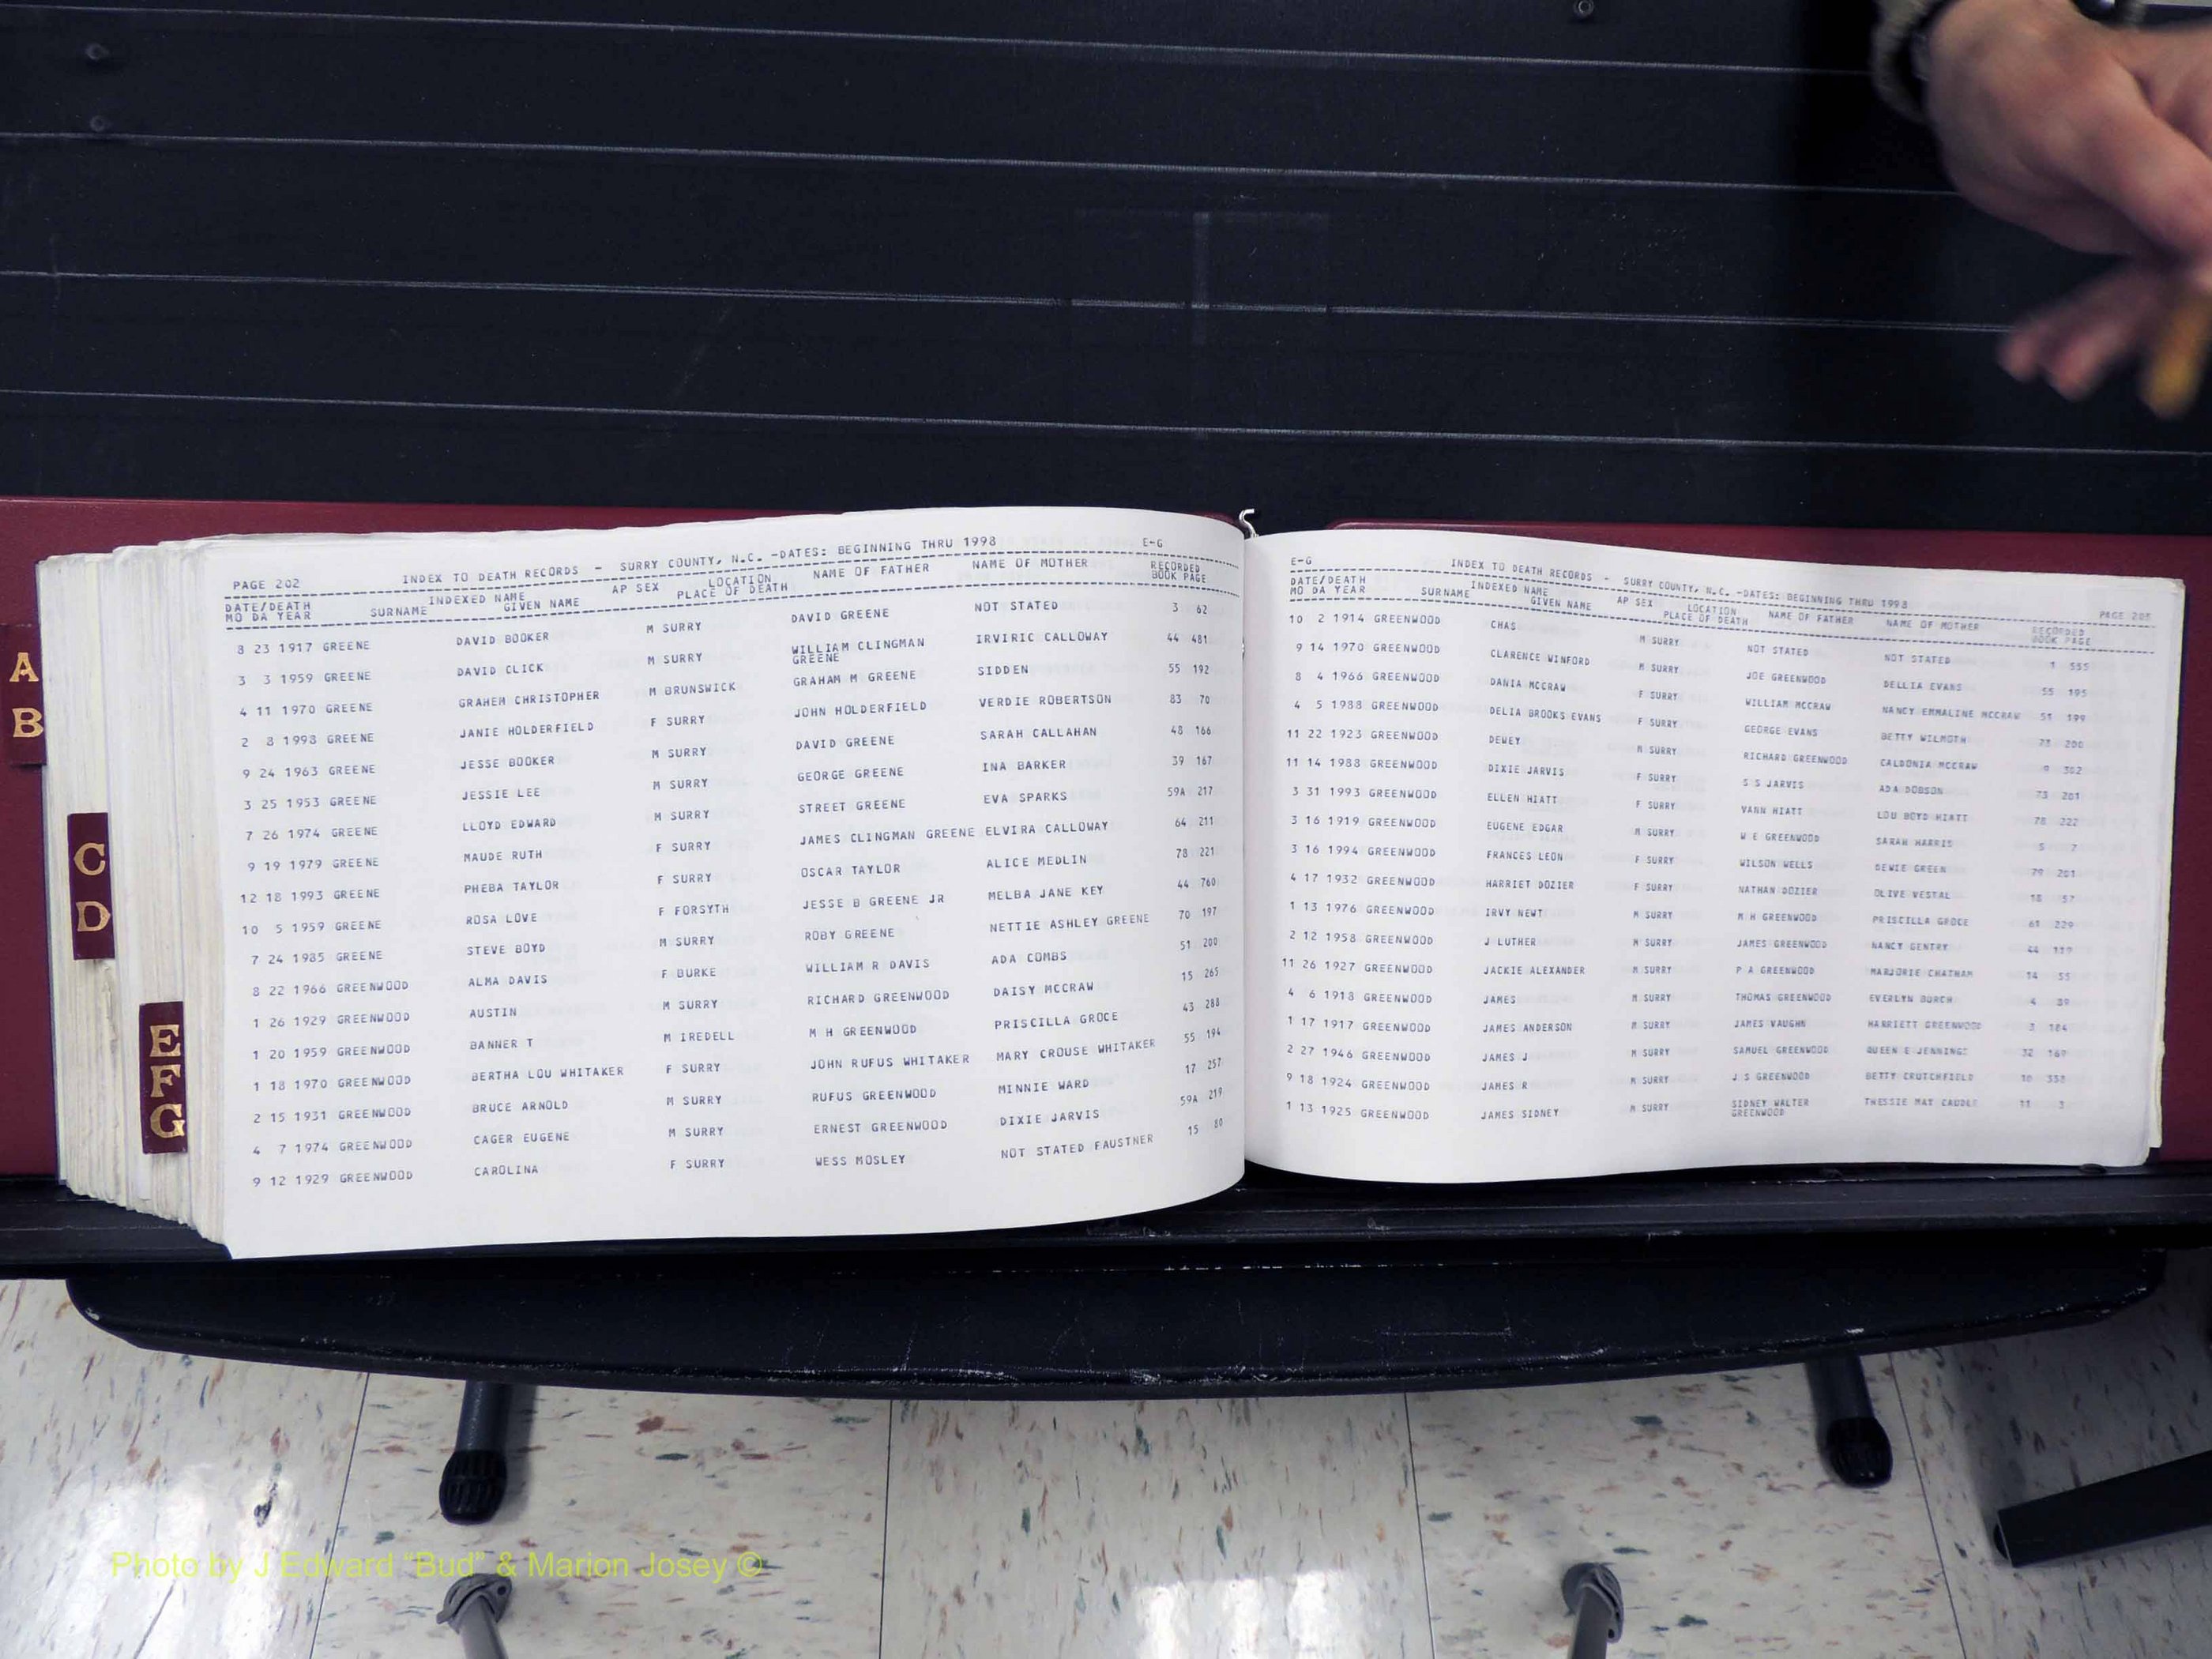 PAGE 202 INDEX TO DEATH RECORDS - SURRY COUNTY, N.C. -DATES: BEGINNING THRU 1998 E-G
DATE/DEATH INDEXED NAME AP SEX LOCATION NAME OF FATHER NAME OF MOTHER RECORDED
MO DA YEAR SURNAME GIVEN NAME PLACE OF DEATH BOOK PAGE
8 23 1917 GREENE DAVID BOOKER M SURRY DAVID GREENE NOT STATED 3 62
3 3 1959 GREENE DAVID CLICK M SURRY WILLIAM CLINGMAN IRVIRIC CALLOWAY 44 481
GREENE
4 11 1970 GREENE GRAHEM CHRISTOPHER M BRUNSWICK GRAHAM M GREENE SIDDEN 55 192
2 8 1998 GREENE JANIE HOLDERFIELD F SURRY JOHN HOLDERFIELD VERDIE ROBERTSON 83 70
9 24 1963 GREENE JESSE BOOKER M SURRY DAVID GREENE SARAH CALLAHAN 48 166
3 25 1953 GREENE JESSIE LEE M SURRY GEORGE GREENE INA BARKER 39 167
7 26 1974 GREENE LLOYD EDWARD M SURRY STREET GREENE EVA SPARKS 59A 217
9 19 1979 GREENE MAUDE RUTH F SURRY JAMES CLINGMAN GREENE ELVIRA CALLOWAY 64 211
12 18 1993 GREENE PHEBA TAYLOR F SURRY OSCAR TAYLOR ALICE MEDLIN 78 221
10 5 1959 GREENE ROSA LOVE F FORSYTH JESSE B GREENE JR MELBA JANE KEY 44 760
7 24 1985 GREENE STEVE BOYD M SURRY ROBY GREENE NETTIE ASHLEY GREENE 70 197
8 22 1966 GREENWOOD ALMA DAVIS F BURKE WILLIAM R DAVIS ADA COMBS 51 200
1 26 1929 GREENWOOD AUSTIN M SURRY RICHARD GREENWOOD DAISY MCCRAW 15 265
1 20 1959 GREENWOOD BANNER T M IREDELL M H GREENWOOD PRISCILLA GROCE 43 288
1 18 1970 GREENWOOD BERTHA LOU WHITAKER F SURRY JOHN RUFUS WHITAKER MARY CROUSE WHITAKER 55 194
2 15 1931 GREENWOOD BRUCE ARNOLD M SURRY RUFUS GREENWOOD MINNIE WARD 17 257
4 7 1974 GREENWOOD CAGER EUGENE M SURRY ERNEST GREENWOOD DIXIE JARVIS 59A 219
9 12 1929 GREENWOOD CAROLINA F SURRY WESS MOSLEY NOT STATED FAUSTNER 15 80
E-G INDEX TO DEATH RECORDS - SURRY COUNTY, N.C. -DATES: BEGINNING THRU 1998 PAGE 203
DATE/DEATH INDEXED NAME AP SEX LOCATION NAME OF FATHER NAME OF MOTHER RECORDED
MO DA YEAR SURNAME GIVEN NAME PLACE OF DEATH BOOK PAGE
10 2 1914 GREENWOOD CHAS M SURRY NOT STATED NOT STATED 1 555
9 14 1970 GREENWOOD CLARENCE WINFORD M SURRY JOE GREENWOOD DELLIA EVANS 55 195
8 4 1966 GREENWOOD DANIA MCCRAW F SURRY WILLIAM MCCRAW NANCY EMMALINE MCCRAW 51 199
4 5 1988 GREENWOOD DELIA BROOKS EVANS F SURRY GEORGE EVANS BETTY WILMOTH 73 200
11 22 1923 GREENWOOD DEWEY M SURRY RICHARD GREENWOOD CALDONIA MCCRAW 9 302
11 14 1988 GREENWOOD DIXIE JARVIS F SURRY S S JARVIS ADA DOBSON 73 201
3 31 1993 GREENWOOD ELLEN HIATT F SURRY VANN HIATT LOU BOYD HIATT 78 222
3 16 1919 GREENWOOD EUGENE EDGAR M SURRY W E GREENWOOD SARAH HARRIS 5 7
3 16 1994 GREENWOOD FRANCES LEON F SURRY WILSON WELLS DEWIE GREEN 79 201
4 17 1932 GREENWOOD HARRIET DOZIER F SURRY NATHAN DOZIER OLIVE VESTAL 18 57
1 13 1976 GREENWOOD IRVY NEWT M SURRY M H GREENWOOD PRISCILLA GROCE 61 229
2 12 1958 GREENWOOD J LUTHER M SURRY JAMES GREENWOOD NANCY GENTRY 44
11 26 1927 GREENWOOD JACKIE ALEXANDER M SURRY P A GREENWOOD MARJORIE CHATHAM 14 55
4 6 1918 GREENWOOD JAMES M SURRY THOMAS GREENWOOD EVERLYN BURCH 4 39
1 17 1917 GREENWOOD JAMES ANDERSON M SURRY JAMES VAUGHN HARRIETT GREENWOOD 3 184
2 27 1946 GREENWOOD JAMES J M SURRY SAMUEL GREENWOOD QUEEN E JENNINGS 32 169
9 18 1924 GREENWOOD JAMES R M SURRY J S GREENWOOD BETTY CRUTCHFIELD 10
1 13 1925 GREENWOOD JAMES SIDNEY M SURRY SIDNEY WALTER THESSIE MAY CAUDLE 11 3
GREENWOOD
A
B
C
D
E
F
G
Photo by J Edward “Bud” & Marion Josey ©